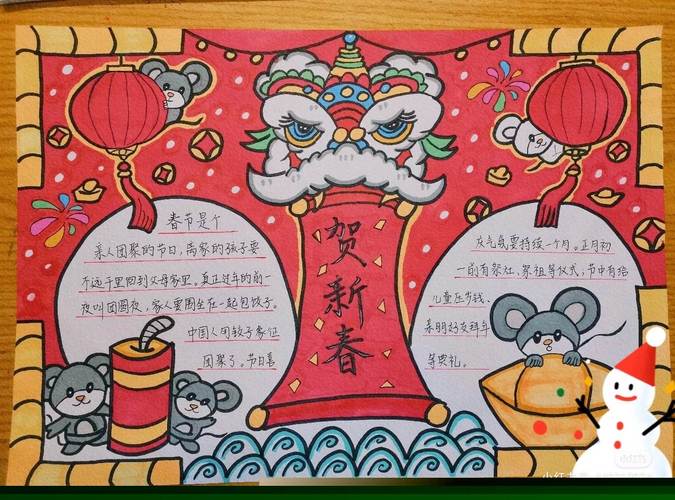 春节是个
亲人团聚的节日,离家的孩子要
不远千里回到父母家里。真正过年的前一
夜叫团圆夜,家人要围坐在一起包饺子。
中国人用饺子象征
团聚了。节日喜
贺新春
庆气氛要持续一个月。正月初
一前有祭灶、祭祖等仪式,节中有给
儿童压岁钱、
亲朋好友拜年
等典礼。
小红书